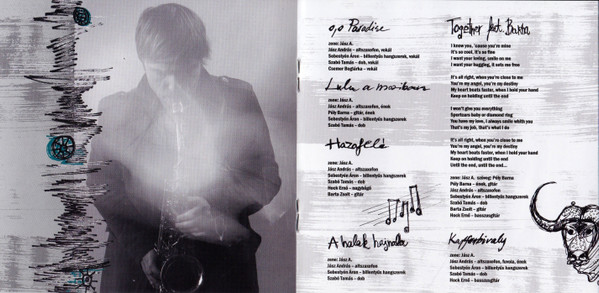 o,o Paradise
zene: Jász A.
Jász András – altszaxofon, vokál
Sebestyén Áron – billentyűs hangszerek, vokál
Szabó Tamás – dob, vokál
Czuzner Boglárka – vokál
Lulu a
zene: Jász A.
Jász András – altszaxofon, ének
Pély Barna – gitár, ének
Sebestyén Áron – billentyűs hangszerek
Szabó Tamás – dob
Hazafelé
zene: Jász A.
Jász András – altszaxofon
Sebestyén Áron – billentyűs hangszerek
Szabó Tamás – dob
Hock Ernő – nagybőgő
Barta Zsolt – gitár
A halak hajnala
zene: Jász A.
Jász András – altszaxofon
Sebestyén Áron – billentyűs hangszerek
Szabó Tamás – dob
Together feat. Barna
I know you, 'cause you're mine
It's so cool, it's so fine
I want your loving, smile on me
I want your hugging, it sets me free
It's all right, when you're close to me
You're my angel, you're my destiny
My heart beats faster, when I hold your hand
Keep on holding until the end
I won't give you everything
Sportscars baby or diamond ring
You have my love, I always smile whith you
That's my job, that's what I do
It's all right, when you're close to me
You're my angel, you're my destiny
My heart beats faster, when I hold your hand
Keep on holding until the end
Until the end, until the end...
zene: Jász A. szöveg: Pély Barna
Pély Barna – ének, gitár
Jász András – altszaxofon
Sebestyén Áron – billentyűs hangszerek
Szabó Tamás – dob
Barta Zsolt – gitár
Hock Ernő – basszusgitár
Kafferbivaly
zene: Jász A.
Jász András – altszaxofon, furulya, ének
Sebestyén Áron – billentyűs hangszerek
Szabó Tamás – dob
Hock Ernő – basszusgitár